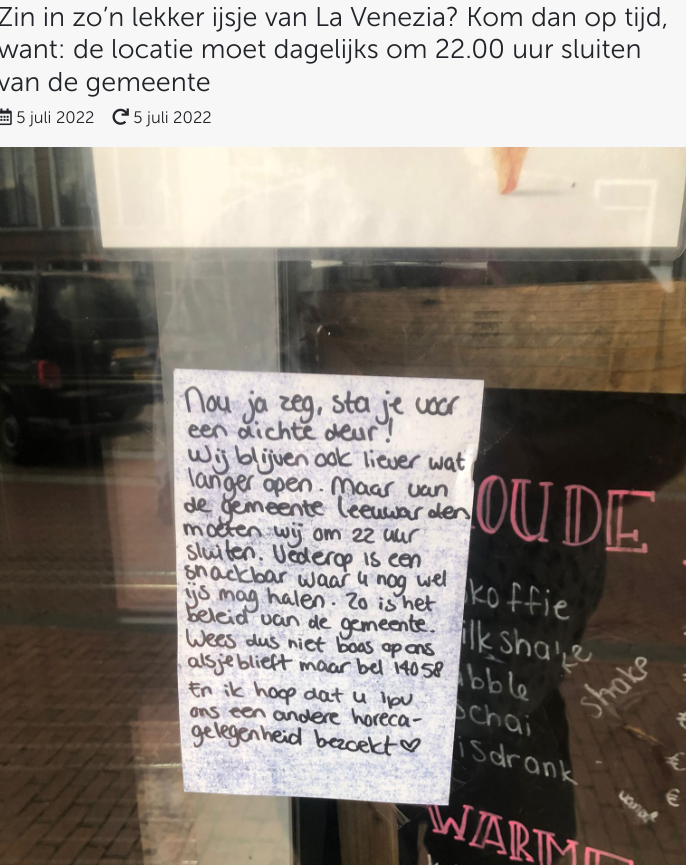 Zin in zo’n lekker ijsje van La Venezia? Kom dan op tijd,
want: de locatie moet dagelijks om 22.00 uur sluiten
van de gemeente
5 juli 2022 5 juli 2022
Nou ja zeg, sta je voor
een dichte deur!
Wij blijven ook liever wat
langer open. Maar van
de gemeente Leeuwarden
moeten wij om 22 uur
sluiten. Verderop is een
snackbar waar u nog wel
ijs mag halen. Zo is het
beleid van de gemeente.
Wees dus niet boos op ons
alsjeblieft maar bel 14058
En ik hoop dat u ipv
ons een andere horeca-
gelegenheid bezoekt ♡
OUDE
koffie
ilkshake
bble
shake
chai
isdrank
€
vanaf €
WARME